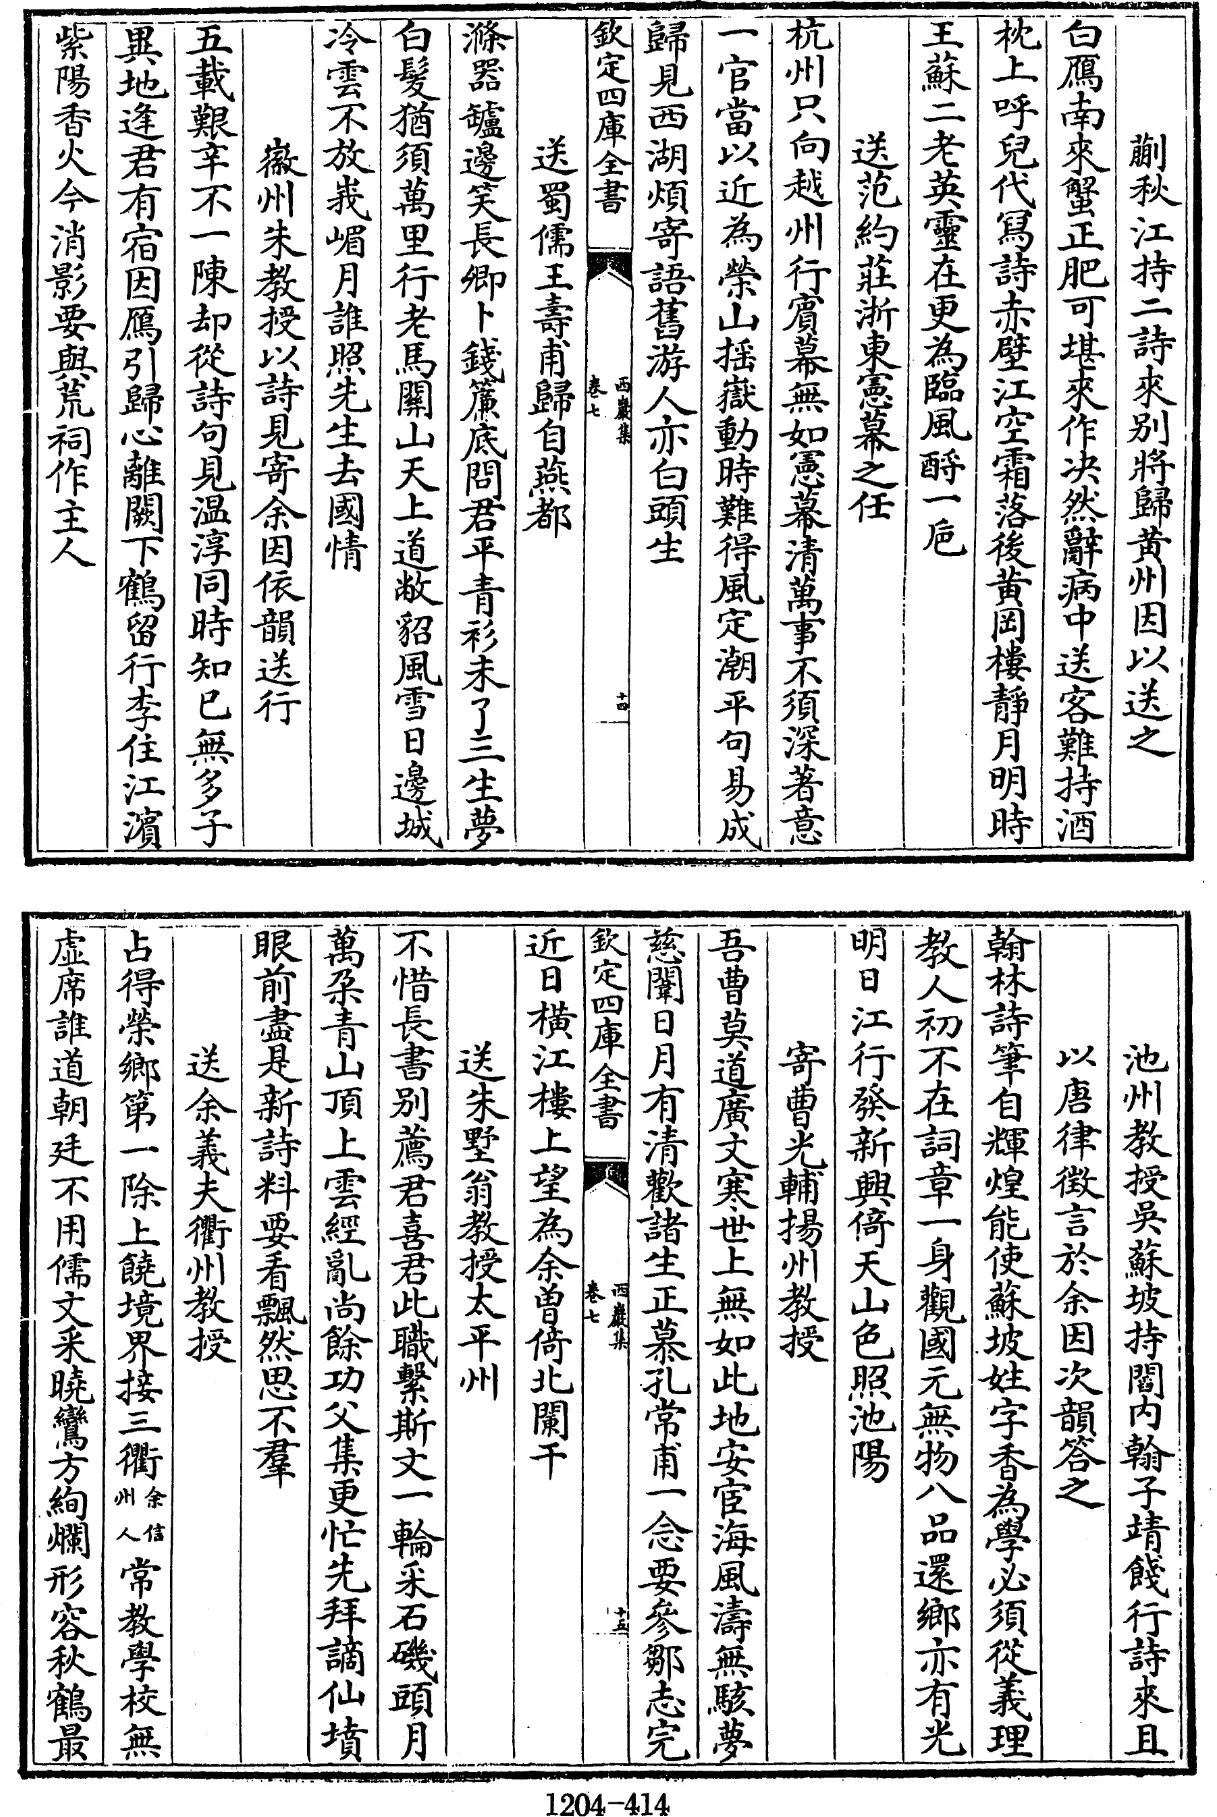 蒯秋江持二詩來别將歸黄州因以送之
白鴈南來蟹正肥可堪來作决然辭病中送客難持酒
枕上呼兒代寫詩赤壁江空霜落後黄岡樓靜月明時
王蘇二老英靈在更為臨風酹一巵
送范約莊浙東憲幕之任
杭州只向越州行賓幕無如憲幕清萬事不須深著意
一官當以近為榮山揺嶽動時難得風定潮平句易成
歸見西湖煩寄語舊游人亦白頭生
欽定四庫全書
西巖集
卷七
十四
送蜀儒王壽甫歸自燕都
滌器罏邊笑長卿卜錢簾底問君平青衫未了三生夢
白髮猶須萬里行老馬關山天上道敝貂風雪日邊城
冷雲不放峩嵋月誰照先生去國情
徽州朱教授以詩見寄余因依韻送行
五載艱辛不一陳却從詩句見温淳同時知已無多子
異地逢君有宿因鴈引歸心離闕下鶴留行李住江濱
紫陽香火今消影要與荒祠作主人
池州教授吳蘇坡持閻内翰子靖餞行詩來且
以唐律徴言於余因次韻答之
翰林詩筆自輝煌能使蘇坡姓字香為學必須從義理
教人初不在詞章一身觀國元無物八品還鄉亦有光
明日江行發新興倚天山色照池陽
寄曹光輔揚州教授
吾曹莫道廣文寒世上無如此地安宦海風濤無駭夢
慈闈日月有清歡諸生正慕孔常甫一念要參鄒志完
欽定四庫全書
西巖集
卷七
十五
近日橫江樓上望為余曽倚北闌干
送朱墅翁教授太平州
不惜長書别薦君喜君此職繫斯文一輪采石磯頭月
萬朶青山頂上雲經亂尚餘功父集更忙先拜謫仙墳
眼前盡是新詩料要看飄然思不羣
送余義夫衢州教授
占得榮鄉第一除上饒境界接三衢余信州人常教學校無
虛席誰道朝廷不用儒文采曉鸞方絢爛形容秋鶴最
1204-414